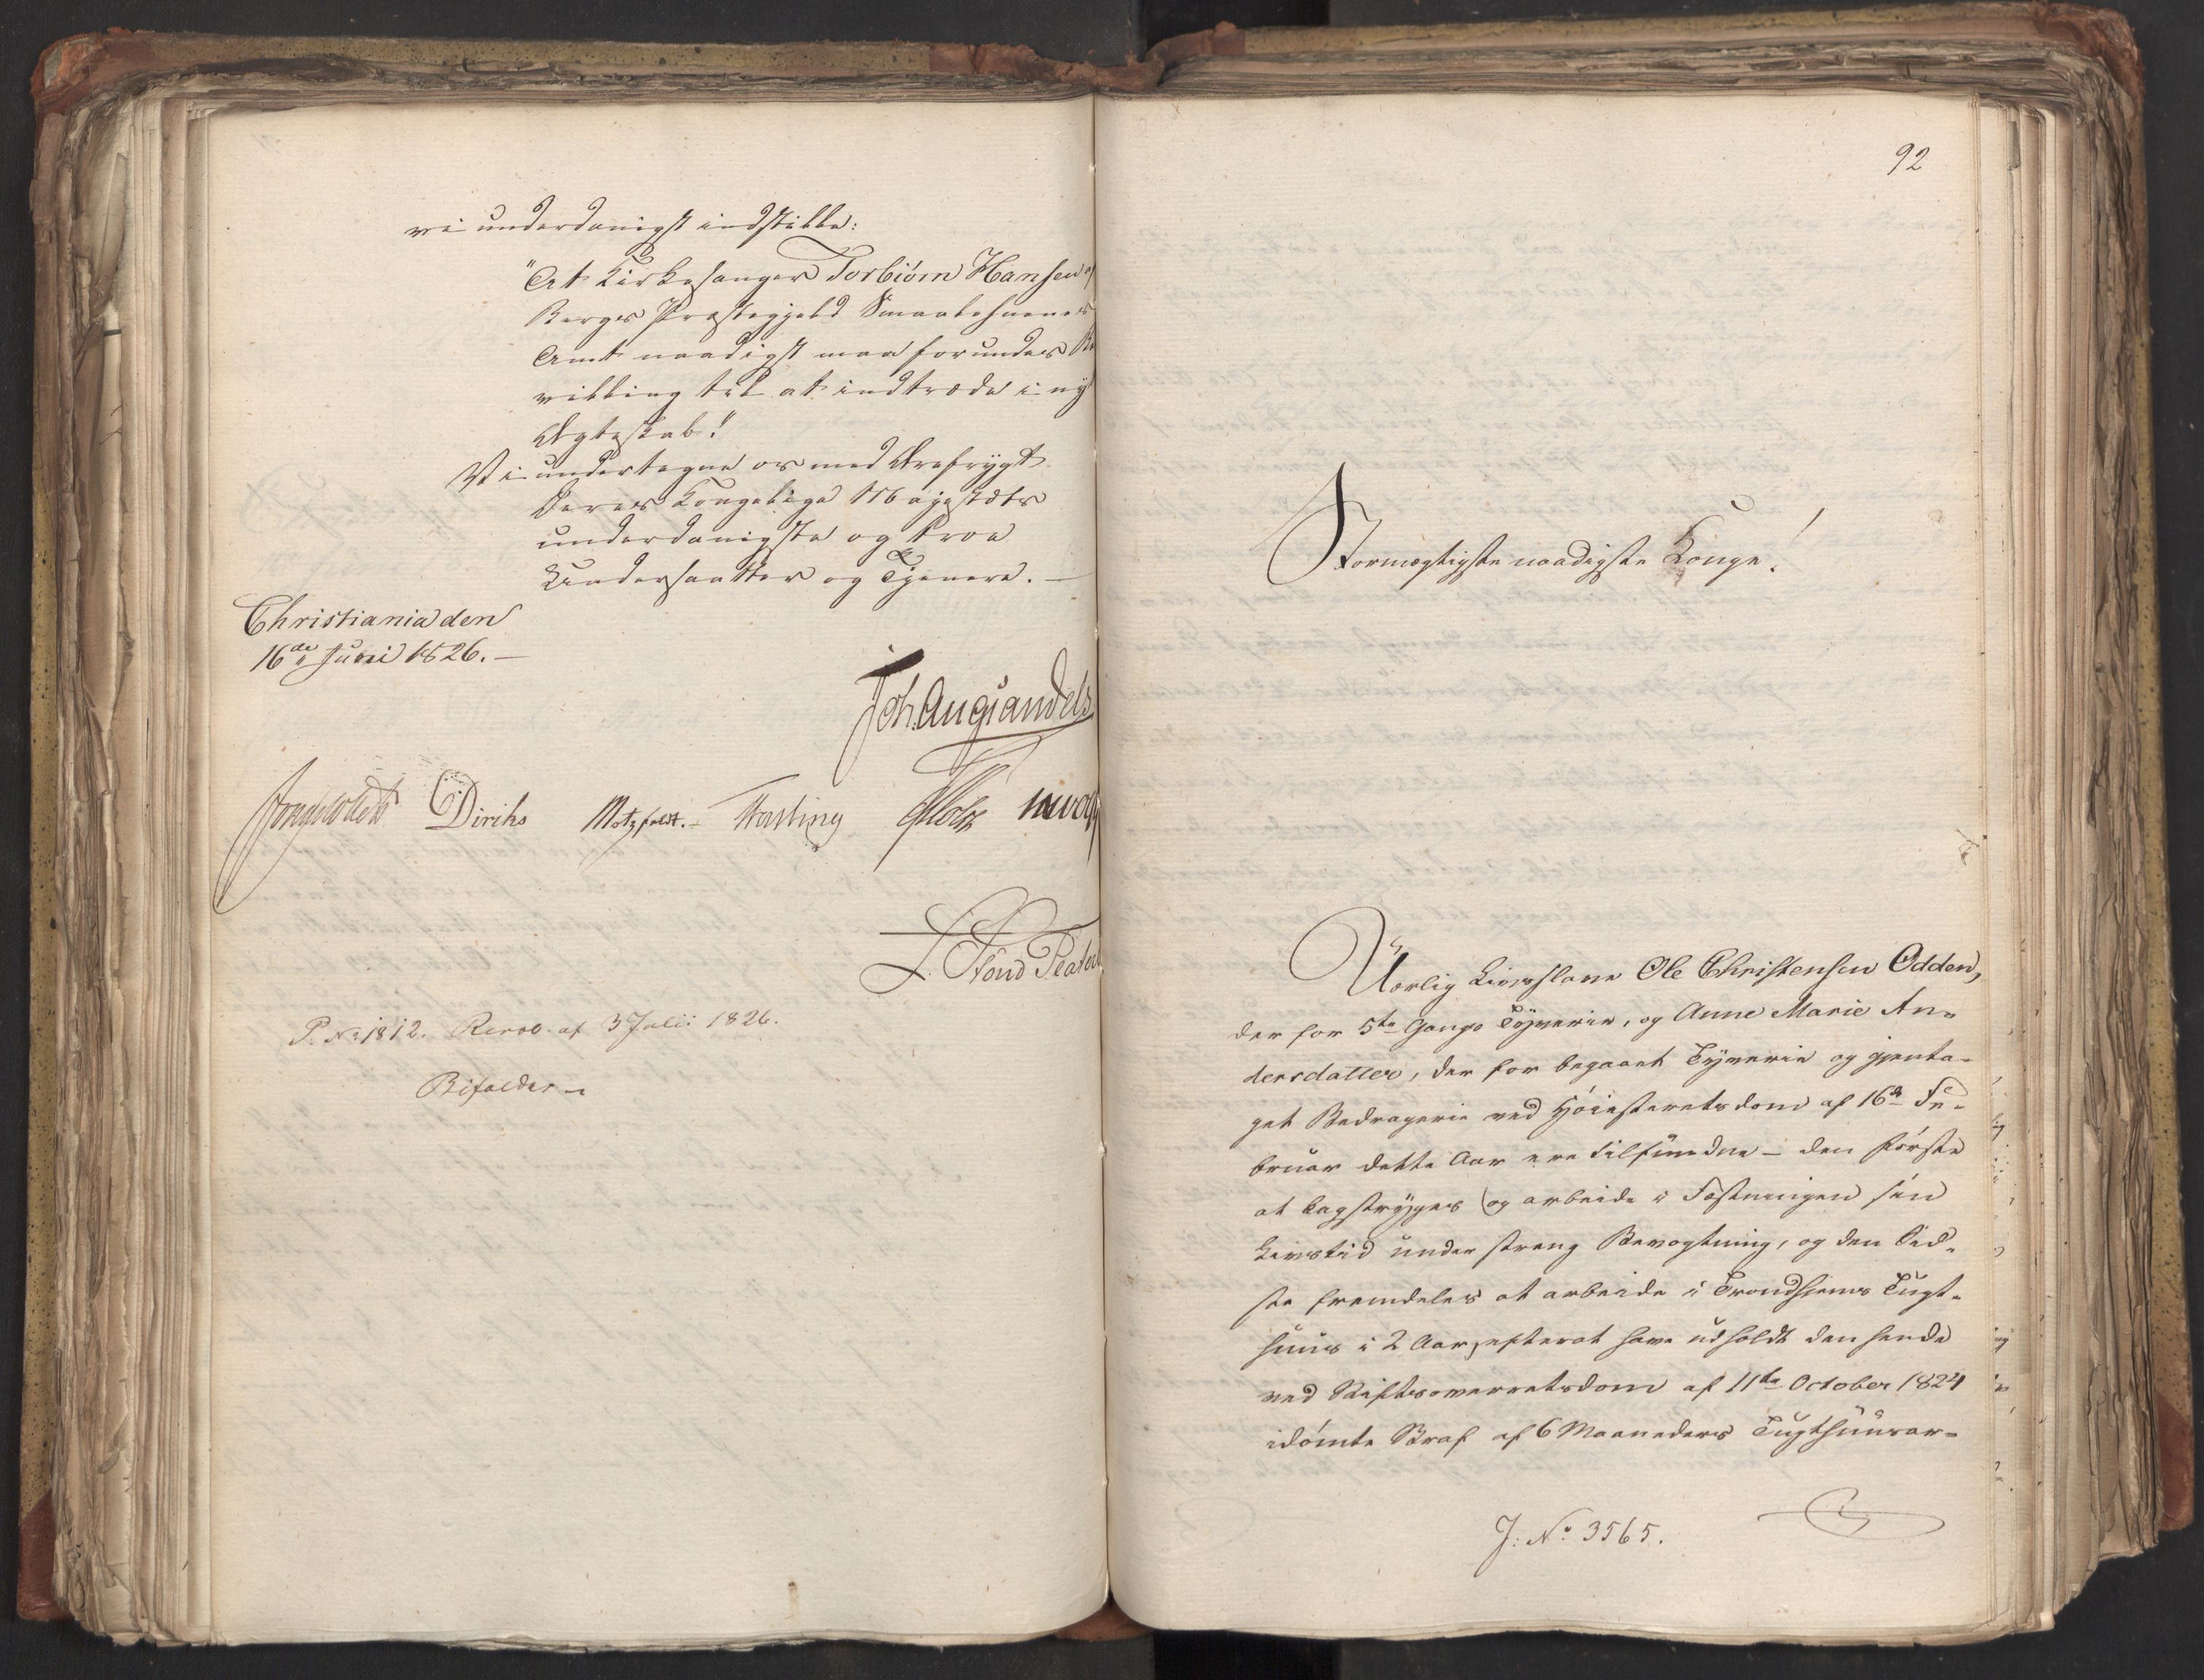 vi underdanigst indstille:
"At Kirkesanger Torbiörn Hansen af
Bergs Præstegjeld Smaalehnenes
Amt naadigst maa forundes Be
villing til at indtræde i nyt
Ægteskab."
Vi undertegne os med Ærefrygt
Deres Kongelige Majestæts
underdanigste og troe
Undersaatter og Tjenere. —
Christiania den
16de Juni 1826. —
Joh. Aug: Sandels
Diriks Motzfeldt. Fasting
P. No 1812. Resol. af 3 Julii 1826.
Bifaldes.
92
Stormægtigste naadigste Konge!
Uærlig Livsslave Ole Christensen Odden,
der for 5te Gangs Tyverie, og Anne Marie An-
dersdatter, der for begaaet Tyverie og gjenta-
get Bedragerie ved Höiesteretsdom af 16de Fe-
bruar dette Aar ere tilfundne – den förste
at kagstryges og arbeide i Fæstningen sin
Livstid under streng Bevogtning, og den Sid-
ste fremdeles at arbeide i Trondhiems Tugt-
huus i 2 Aar, efterat have udholdt den hende
ved Stiftsoverretsdom af 11te October 1824
idömte Straf af 6 Maaneders Tugthuusar-
J: No 3565.